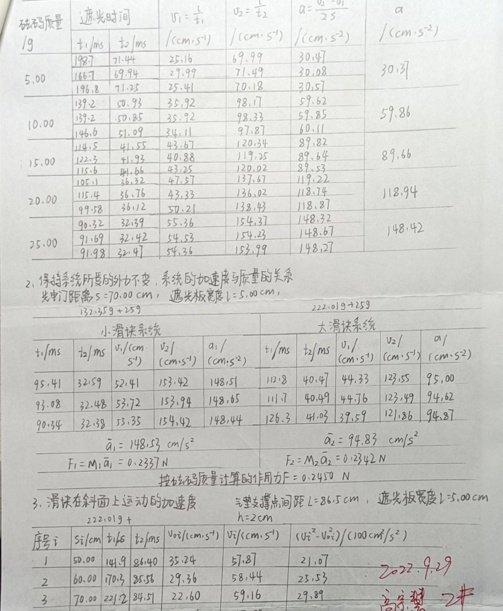 砝码质量 /g 遮光时间 v₁=l/t₁ /(cm·s⁻¹) v₂=l/t₂ /(cm·s⁻¹) a= /(cm·s⁻²) a /(cm·s⁻²)
t₁/ms t₂/ms
5.00 198.7 71.44 25.16 69.99 30.47 30.37
166.7 69.94 29.99 71.49 30.08
196.8 71.25 25.41 70.18 30.57
10.00 139.2 50.93 35.92 98.17 59.62 59.86
139.2 50.85 35.92 98.33 59.85
146.6 51.09 34.11 97.87 60.11
15.00 114.5 41.55 43.67 120.34 89.82 89.66
122.3 41.93 40.88 119.25 89.64
115.6 41.66 43.25 120.02 89.53
20.00 105.1 36.32 47.57 137.67 119.22 118.94
115.4 36.76 43.33 136.02 118.74
99.58 36.12 50.21 138.43 118.87
25.00 90.32 32.39 55.36 154.37 148.32 148.42
91.69 32.42 54.53 154.23 148.67
91.98 32.47 54.36 153.99 148.27
2. 保持系统所受的外力不变,系统的加速度与质量的关系
光电门距离 s=70.00 cm, 遮光板宽度 l=5.00 cm,
132.359+259 222.019+259
小滑块系统 大滑块系统
t₁/ms t₂/ms v₁/(cm·s⁻¹) v₂/(cm·s⁻¹) a₁/(cm·s⁻²) t₁/ms t₂/ms v₁/(cm·s⁻¹) v₂/(cm·s⁻¹) a/(cm·s⁻²)
95.41 32.59 52.41 153.42 148.51 112.8 40.47 44.33 123.55 95.00
93.08 32.48 53.72 153.94 148.65 111.7 40.49 44.76 123.49 94.62
90.34 32.38 55.35 154.42 148.44 126.3 41.03 39.59 121.86 94.87
ā₁ = 148.53 cm/s² ā₂ = 94.83 cm/s²
F₁=M₁ā₁=0.2337N F₂=M₂ā₂=0.2342N
按砝码质量计算的作用力F=0.2450 N
3. 滑块在斜面上运动的加速度 气垫支撑点间距 L=86.5cm, 遮光板宽度 l=5.00cm
222.019+ h=2cm
序号i Si/cm t₁/s t₂/ms v₀ᵢ/(cm·s⁻¹) vᵢ/(cm·s⁻¹) (vᵢ²-v₀ᵢ²)/(100cm²/s²)
1 50.00 141.9 86.40 35.24 57.87 21.07
2 60.00 170.3 85.56 29.36 58.44 25.53
3 70.00 221.2 84.51 22.60 59.16 29.89
2022.9.29